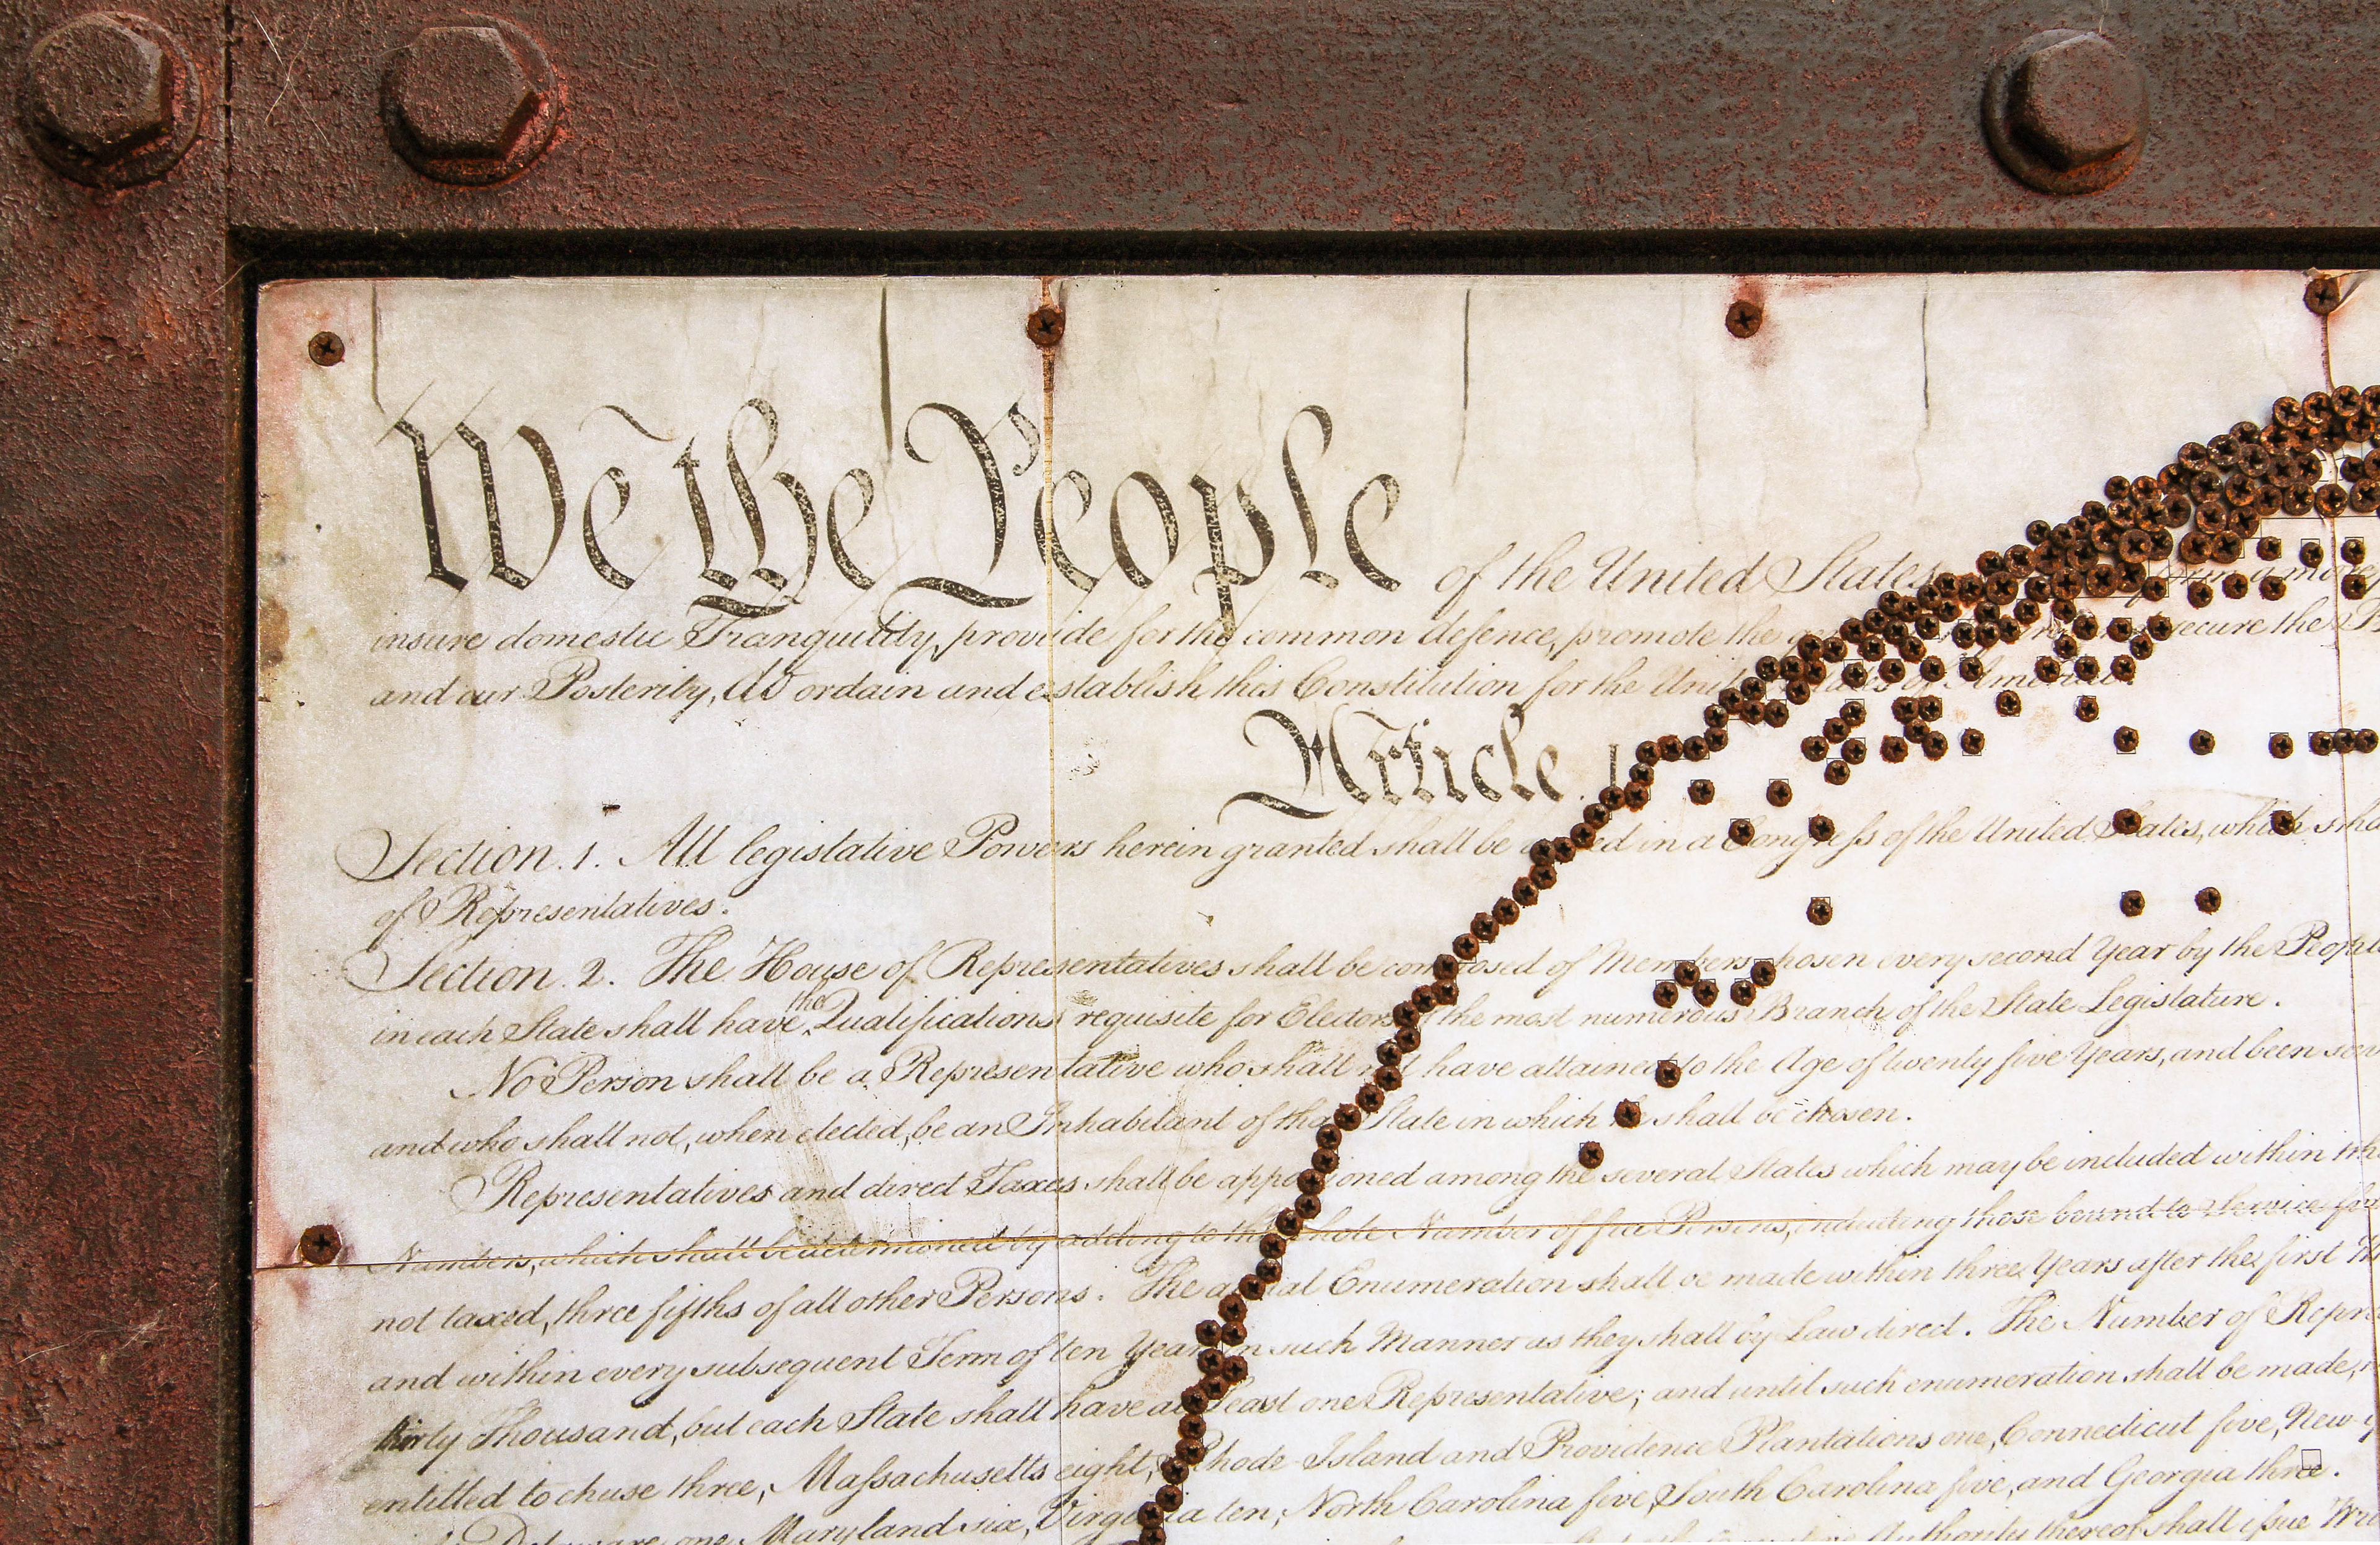 We the People of the United States
insure domestic Tranquility, provide for the common defence, promote the secure the
and our Posterity, do ordain and establish this Constitution for the United States of America.
Article. I.
Section. 1. All legislative Powers herein granted shall be in a Congress of the United States, which
of Representatives.
Section. 2. The House of Representatives shall be composed of Members chosen every second Year by the People
in each State shall have the Qualifications requisite for Electors the most numerous Branch of the State Legislature.
No Person shall be a Representative who shall not have attained to the Age of twenty five Years, and been
and who shall not, when elected, be an Inhabitant of that State in which he shall be chosen.
Representatives and direct Taxes shall be apportioned among the several States which may be included within
Numbers, which shall be determined by adding to the whole Number of free Persons, including those bound to Service for
not taxed, three fifths of all other Persons. The actual Enumeration shall be made within three Years after the first
and within every subsequent Term of ten Years, in such Manner as they shall by Law direct. The Number of
thirty Thousand, but each State shall have at Least one Representative; and until such enumeration shall be made,
entitled to chuse three, Massachusetts eight, Rhode-Island and Providence Plantations one, Connecticut five, New-
Delaware one, Maryland six, Virginia ten, North Carolina five, South Carolina five, and Georgia three.
Authority thereof shall issue